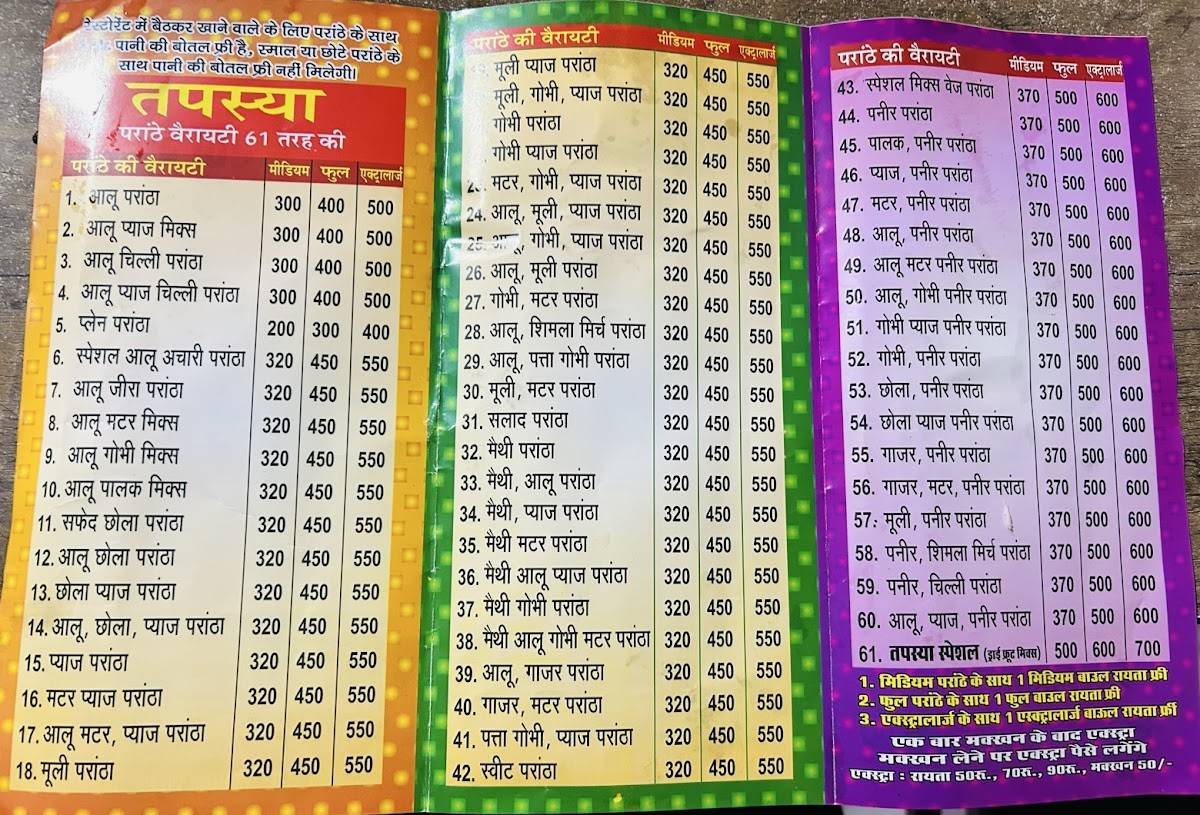 रेस्टोरेंट में बैठकर खाने वाले के लिए परांठे के साथ
पानी की बोतल फ्री है, स्माल या छोटे परांठे के
साथ पानी की बोतल फ्री नहीं मिलेगी।
तपस्या
परांठे वैरायटी 61 तरह की
परांठे की वैरायटी मीडियम फुल एक्ट्रालार्ज
1. आलू परांठा 300 400 500
2. आलू प्याज मिक्स 300 400 500
3. आलू चिल्ली परांठा 300 400 500
4. आलू प्याज चिल्ली परांठा 300 400 500
5. प्लेन परांठा 200 300 400
6. स्पेशल आलू अचारी परांठा 320 450 550
7. आलू जीरा परांठा 320 450 550
8. आलू मटर मिक्स 320 450 550
9. आलू गोभी मिक्स 320 450 550
10. आलू पालक मिक्स 320 450 550
11. सफेद छोला परांठा 320 450 550
12. आलू छोला परांठा 320 450 550
13. छोला प्याज परांठा 320 450 550
14. आलू, छोला, प्याज परांठा 320 450 550
15. प्याज परांठा 320 450 550
16. मटर प्याज परांठा 320 450 550
17. आलू मटर, प्याज परांठा 320 450 550
18. मूली परांठा 320 450 550
परांठे की वैरायटी मीडियम फुल एक्ट्रालार्ज
मूली प्याज परांठा 320 450 550
मूली, गोभी, प्याज परांठा 320 450 550
गोभी परांठा 320 450 550
गोभी प्याज परांठा 320 450 550
23. मटर, गोभी, प्याज परांठा 320 450 550
24. आलू, मूली, प्याज परांठा 320 450 550
25. आलू, गोभी, प्याज परांठा 320 450 550
26. आलू, मूली परांठा 320 450 550
27. गोभी, मटर परांठा 320 450 550
28. आलू, शिमला मिर्च परांठा 320 450 550
29. आलू, पत्ता गोभी परांठा 320 450 550
30. मूली, मटर परांठा 320 450 550
31. सलाद परांठा 320 450 550
32. मैथी परांठा 320 450 550
33. मैथी, आलू परांठा 320 450 550
34. मैथी, प्याज परांठा 320 450 550
35. मैथी मटर परांठा 320 450 550
36. मैथी आलू प्याज परांठा 320 450 550
37. मैथी गोभी परांठा 320 450 550
38. मैथी आलू गोभी मटर परांठा 320 450 550
39. आलू, गाजर परांठा 320 450 550
40. गाजर, मटर परांठा 320 450 550
41. पत्ता गोभी, प्याज परांठा 320 450 550
42. स्वीट परांठा 320 450 550
परांठे की वैरायटी मीडियम फुल एक्ट्रालार्ज
43. स्पेशल मिक्स वेज परांठा 370 500 600
44. पनीर परांठा 370 500 600
45. पालक, पनीर परांठा 370 500 600
46. प्याज, पनीर परांठा 370 500 600
47. मटर, पनीर परांठा 370 500 600
48. आलू, पनीर परांठा 370 500 600
49. आलू मटर पनीर परांठा 370 500 600
50. आलू, गोभी पनीर परांठा 370 500 600
51. गोभी प्याज पनीर परांठा 370 500 600
52. गोभी, पनीर परांठा 370 500 600
53. छोला, पनीर परांठा 370 500 600
54. छोला प्याज पनीर परांठा 370 500 600
55. गाजर, पनीर परांठा 370 500 600
56. गाजर, मटर, पनीर परांठा 370 500 600
57. मूली, पनीर परांठा 370 500 600
58. पनीर, शिमला मिर्च परांठा 370 500 600
59. पनीर, चिल्ली परांठा 370 500 600
60. आलू, प्याज, पनीर परांठा 370 500 600
61. तपस्या स्पेशल (ड्राई फ्रूट मिक्स) 500 600 700
1. मिडियम परांठे के साथ 1 मिडियम बाउल रायता फ्री
2. फुल परांठे के साथ 1 फुल बाउल रायता फ्री
3. एक्स्ट्रालार्ज के साथ 1 एक्स्ट्रालार्ज बाऊल रायता फ्रीं
एक बार मक्खन के बाद एक्स्ट्रा
मक्खन लेने पर एक्स्ट्रा पैसे लगेंगे
एक्स्ट्रा : रायता 50रू., 70रू., 90रू., मक्खन 50/-